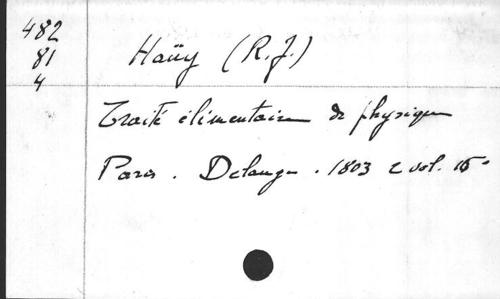 482
81
4
Haüy (R. J.)
Traité élémentaire de physique
Paris. Delance. 1803 2 vol. 16°